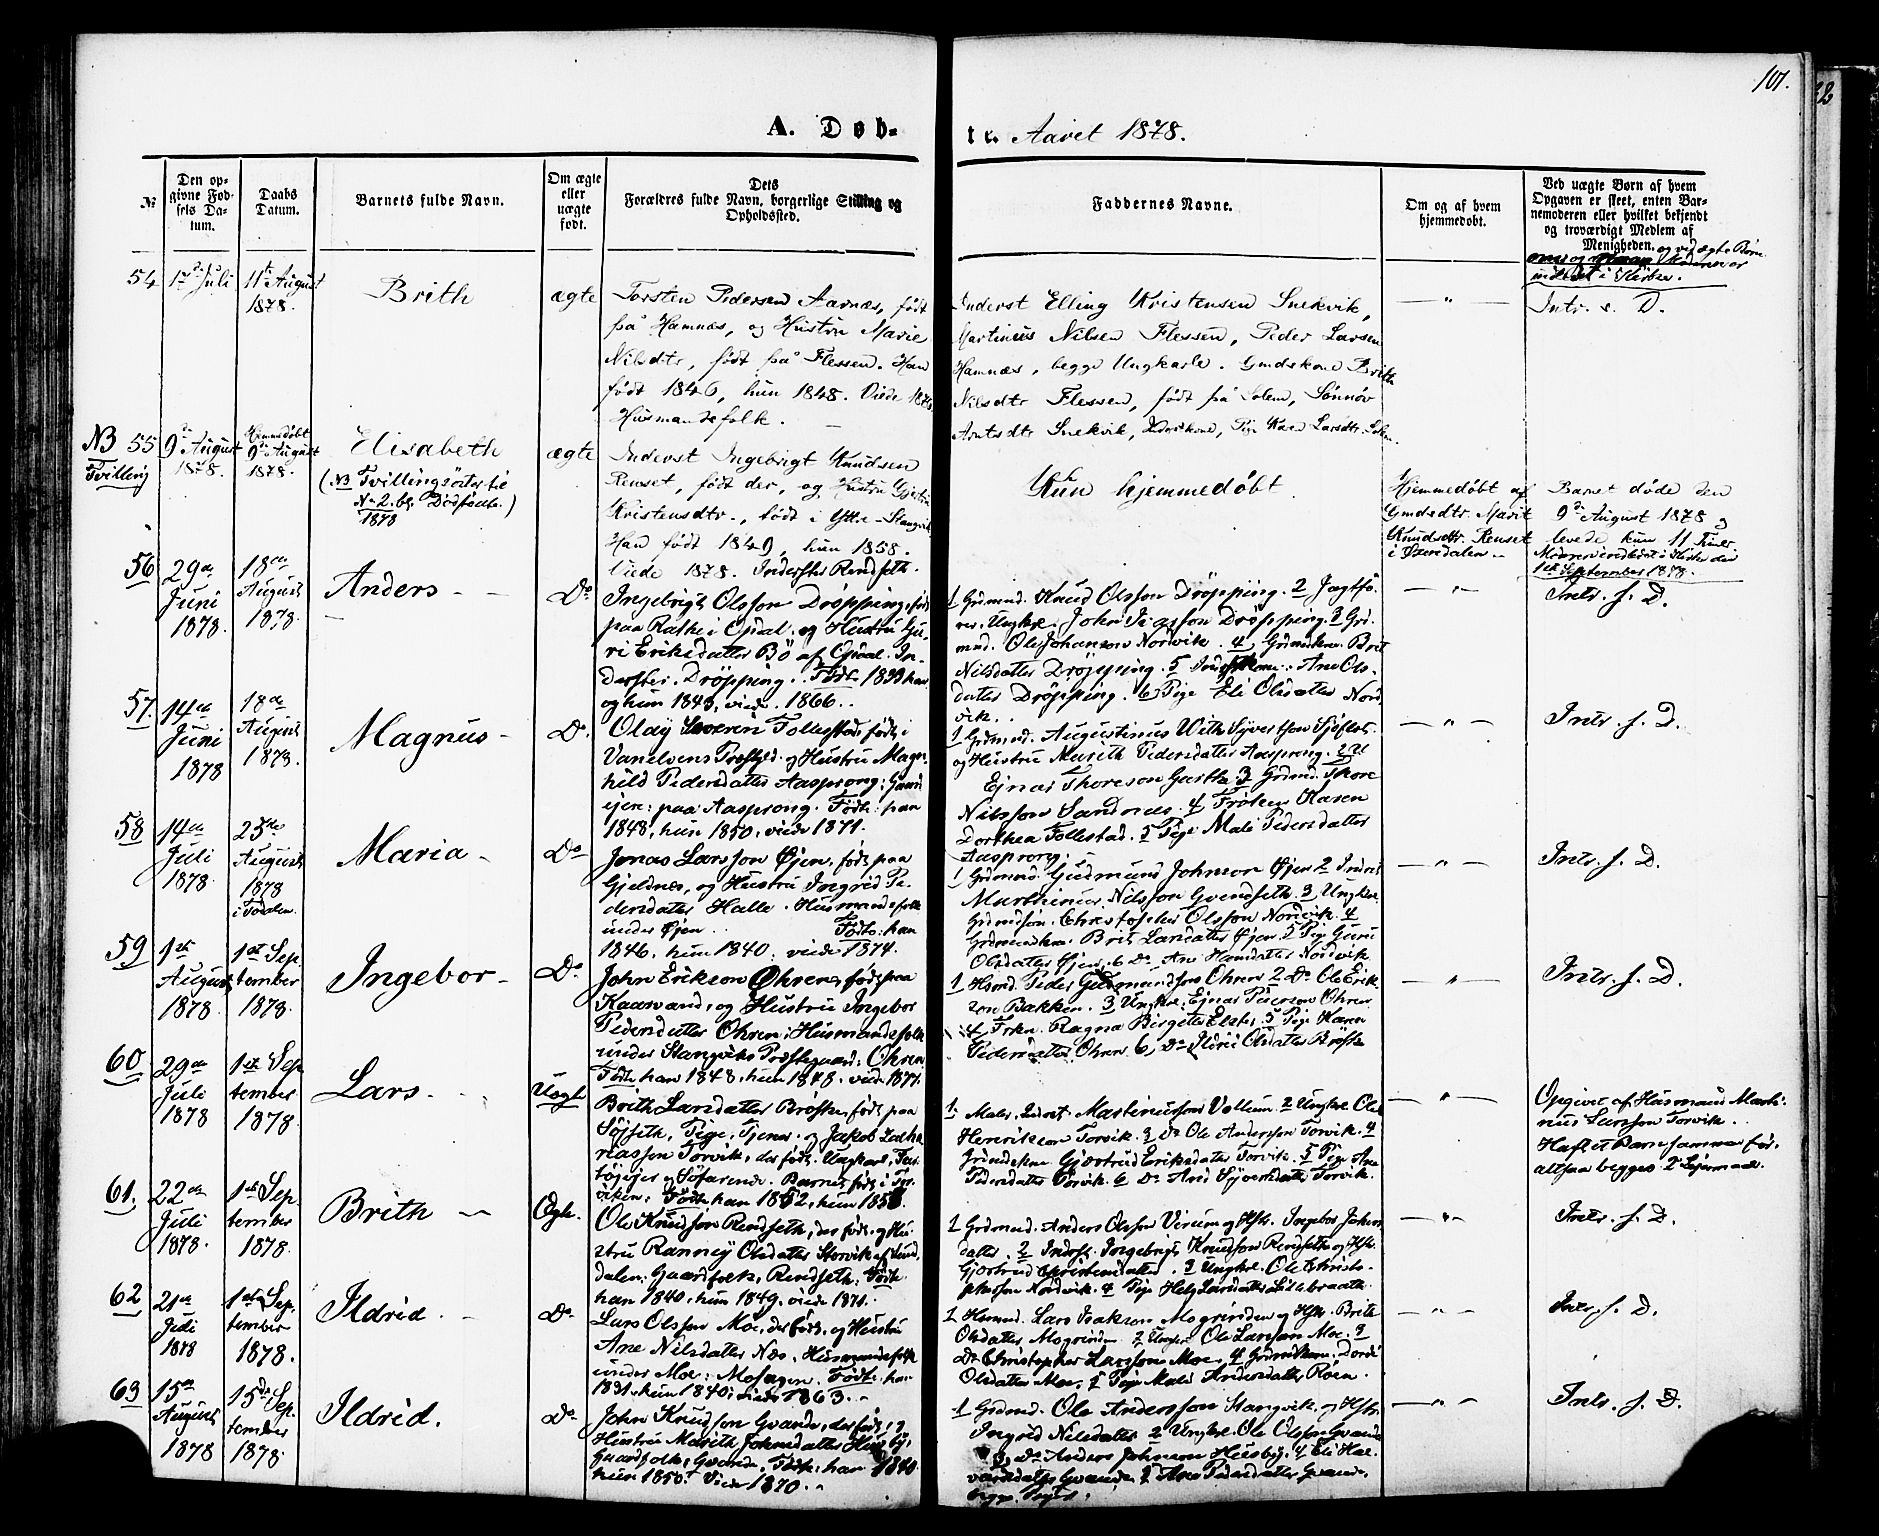 101.
A. Døb-
te. Aaret 1878.
№
Den opgivne Fødsels Datum.
Daabs Datum.
Barnets fulde Navn.
Om ægte eller uægte født.
Dets Forældres fulde Navn, borgerlige Stilling og Opholdssted.
Faddernes Navne.
Om og af hvem hjemmedøbt.
Ved uægte Børn af hvem Opgaven er skeet, enten Barnemoderen eller hvilket bekjendt og troværdigt Medlem af Menigheden. og ved ægte Børn
Moderen er
indledet i Kirken.
54
1de Juli
11te August
1878.
Brith
ægte
Torsten Pedersen Aarnæs, født
på Hamnæs, og Hustru Marie
Nilsdtr, født på Flessen. Han
født 1846, hun 1848. Viede 1876
Husmandsfolk.
Inderst Elling Kristensen Snekvik,
Martinius Nilsen Flessen, Peder Larsen
Hamnæs, begge Ungkarle. Gmdskone Brith
Nilsdtr Flessen, født på Solem, Sønnøv
Arntsdtr Snekvik, Inderstkone, Pige Karen Larsdtr Solem.
— " —
Intr. s. D.
NB 55
Tvilling
9de August
1878.
Hjemmedøbt
9de August
1878.
Elisabeth
(NB Tvillingsöster til
No 2. bl. Dødfödte.)
1878
ægte
Inderst Ingebrigt Knudsen
Renset, født der, og Hustru Gjertru
Kristensdtr., født i Yttre-Stangvik
Han født 1849, hun 1858.
Viede 1878. Inderster Rendseth.
Kun hjemmedøbt.
Hjemmedøbt af
Gmdsdtr. Marit
Knudsdtr. Renset
Barnet døde den
9de August 1878 og
levede kun 11 Timer
Moderen indledet i Kirken den
1ste September 1878.
56
29de
Juni
1878.
18de
August
1878
Anders
Do
Ingebrigt Olsson Dröpping, født
paa Rathe i Opdal, og Hustru Gu-
ri Eriksdatter Bö af Opdal. In-
derster. Dröpping. Födt: 1833 han
og hun 1843, viede 1866.
1 Grdmand. Knud Olsson Dröpping. 2 Jægtfö-
rer, Ungkrl. John Isacsson Dröpping. 3 Grd-
mnd. Ole Johansen Nordvik. 4 Grdmdskone. Brit
Nilsdatter Dröpping. 5 Inderstkone. Ane Ols-
datter Dröpping. 6 Pige Eli Olsdatter Nord-
vik.
— " —
Intr. s. D.
57.
14de
Juni
1878
18de
August
1878.
Magnus
Do
Olay Severin Follestad, født i
Vanelvens Præstgjeld. og Hustru Magn-
hild Pedersdatter Aasprong: Gaard
ejer: paa Aasprong. Födt: han
1848, hun 1850, viede 1871.
1 Grdmand. Augustinus With Syvertson Sjöflot.
og Hustru Marith Pedersdatter Aasprong. 2
Ejnar Thoreson Garthe 3 Grdmd. Thore
Nilsson Sandnes. 4 Fröken Karen
Dorthea Follestad. 5 Pige Mali Pedersdatter
Aasprong.
— " —
Intr. s. D.
58
14de
Juli
1878
25de
August
1878
i Todalen.
Maria
Do
Jonas Larsson Öjen, født paa
Gjeldnæs, og Hustru Ingrid Pe-
dersdatter Halle. Husmandsfolk
under Öjen. Födte: han
1846, hun 1840. viede 1874.
1 Grdmand. Gudmund Johnson Öjen 2 Inderst
Marthinus Nilsson Qvendseth 3 Ungkrl.
Grdmdsön. Christopher Olsson Nordvik. 4
Grdmandskn. Brit Larsdatter Öjen. 5 Pige Guru
Olsdatter Öjen. 6 Do Ane Hansdatter Nordvik
— " —
Intr. s. D.
59
1ste
August
1878
1ste Sep
tember
1878.
Ingebor
Do
John Erikson Öhren, født paa
Kaarvand, og Hustru Ingebor
Pedersdatter Öhren: Husmandsfolk
under Stangviks Præstegaard: Öhren
Födte han 1848, hun 1848. viede 1877.
1 Hsmd. Peder Gudmundsson Öhren 2 Do Ole Erik-
son Bakken. 3 Ungkrl. Ejnar Pederson Öhren
4 Frkn. Ragna Birgitte 5 Pige Karen
Pedersdatter Öhren 6 Do Ildri Olsdatter Bröske
— " —
Intr. s. D.
60
29de
Juli
1878
1ste Sep
tember
1878
Lars
Uægt
Brith Larsdatter Bröske, født paa
Söjseth, Pige, Tjener. og Jakob Zacha-
riasson Torvik, der født. Ungkarl, Fis-
og Söfarende. Barnet født i Tor-
viken: Födte han 1852, hun 1858.
1. Martinusson Vollum. 2 Ungkrl. Ole
Henrikson Torvik. 3 Do Ole Andersson Torvik. 4
Grdmdskne Gjærtrud Eriksdatter Torvik. 5 Pige Ane
Pedersdatter Torvik. 6 Do Ane Torvik.
— " —
Opgivet af Husmand Marti-
nus Larsson Torvik.
Haft et Barn sammen för,
altsaa begges 2det Lejermaal.
61.
22de
Juli
1878.
1ste Sep
tember
1878.
Brith
Ægte.
Ole Knudson Rendseth, der født, og Hu-
stru Ranney Olsdatter Storvik af Sund-
dalen: Gaardfolk, Rendseth: Födte
han 1840, hun 1849, viede 1871.
1 Grdmnd. Anders Olsson Virum og Hstr. Ingebor Johns
datter, 2 Inderst. Ingebrigt Knudson Rendseth og Hstr.
Gjærtrud Christensdatter. 3 Ungkrl. Ole Christo-
pherson Nordvik. 4 Pige Helg Larsdatter Lillebraath.
— " —
Intr. s. D.
62
21de
Juli
1878
1ste Sep
tember
1878.
Ildrid
Do
Lars Olsson Moe, der født, og Hustru
Ane Nilsdatter Næs, Husmandsfolk
under Moe: Mohagen. Födt: han
1831, hun 1840, viede 1863.
1 Hsmnd. Lars Isakson Mogrinden og Hstr. Brith
Olsdatter Mogrinden 2 Ungkrl. Ole Larsson Moe. 3
Do Christopher Larsson Moe. 4 Grdmdskone. Dordi
Olsdatter Moe. 5 Pige Mali Andersdatter Röen.
— " —
Intr. s. D.
63
15de
August
1878
15de Sep
tember
1878.
Ildrid.
Do
John Knudson Qvande, der født, og
Hustru Marith Johnsdatter Husby,
Gaardfolk, Qvande. Födt: han 1840
hun 1850. Viede 1870.
1 Grdmd. Ole Andersson Stangvik og Hstr.
Ingrid Nilsdatter 2 Ungkrl. Ole Olsson Qvande
3 Do Anders Johnson Husby, 4 Eli Hal-
vardsdatter Qvande, 5 Ane Pedersdatter Qvande,
begge Piger.
— " —
Intr. s. D.